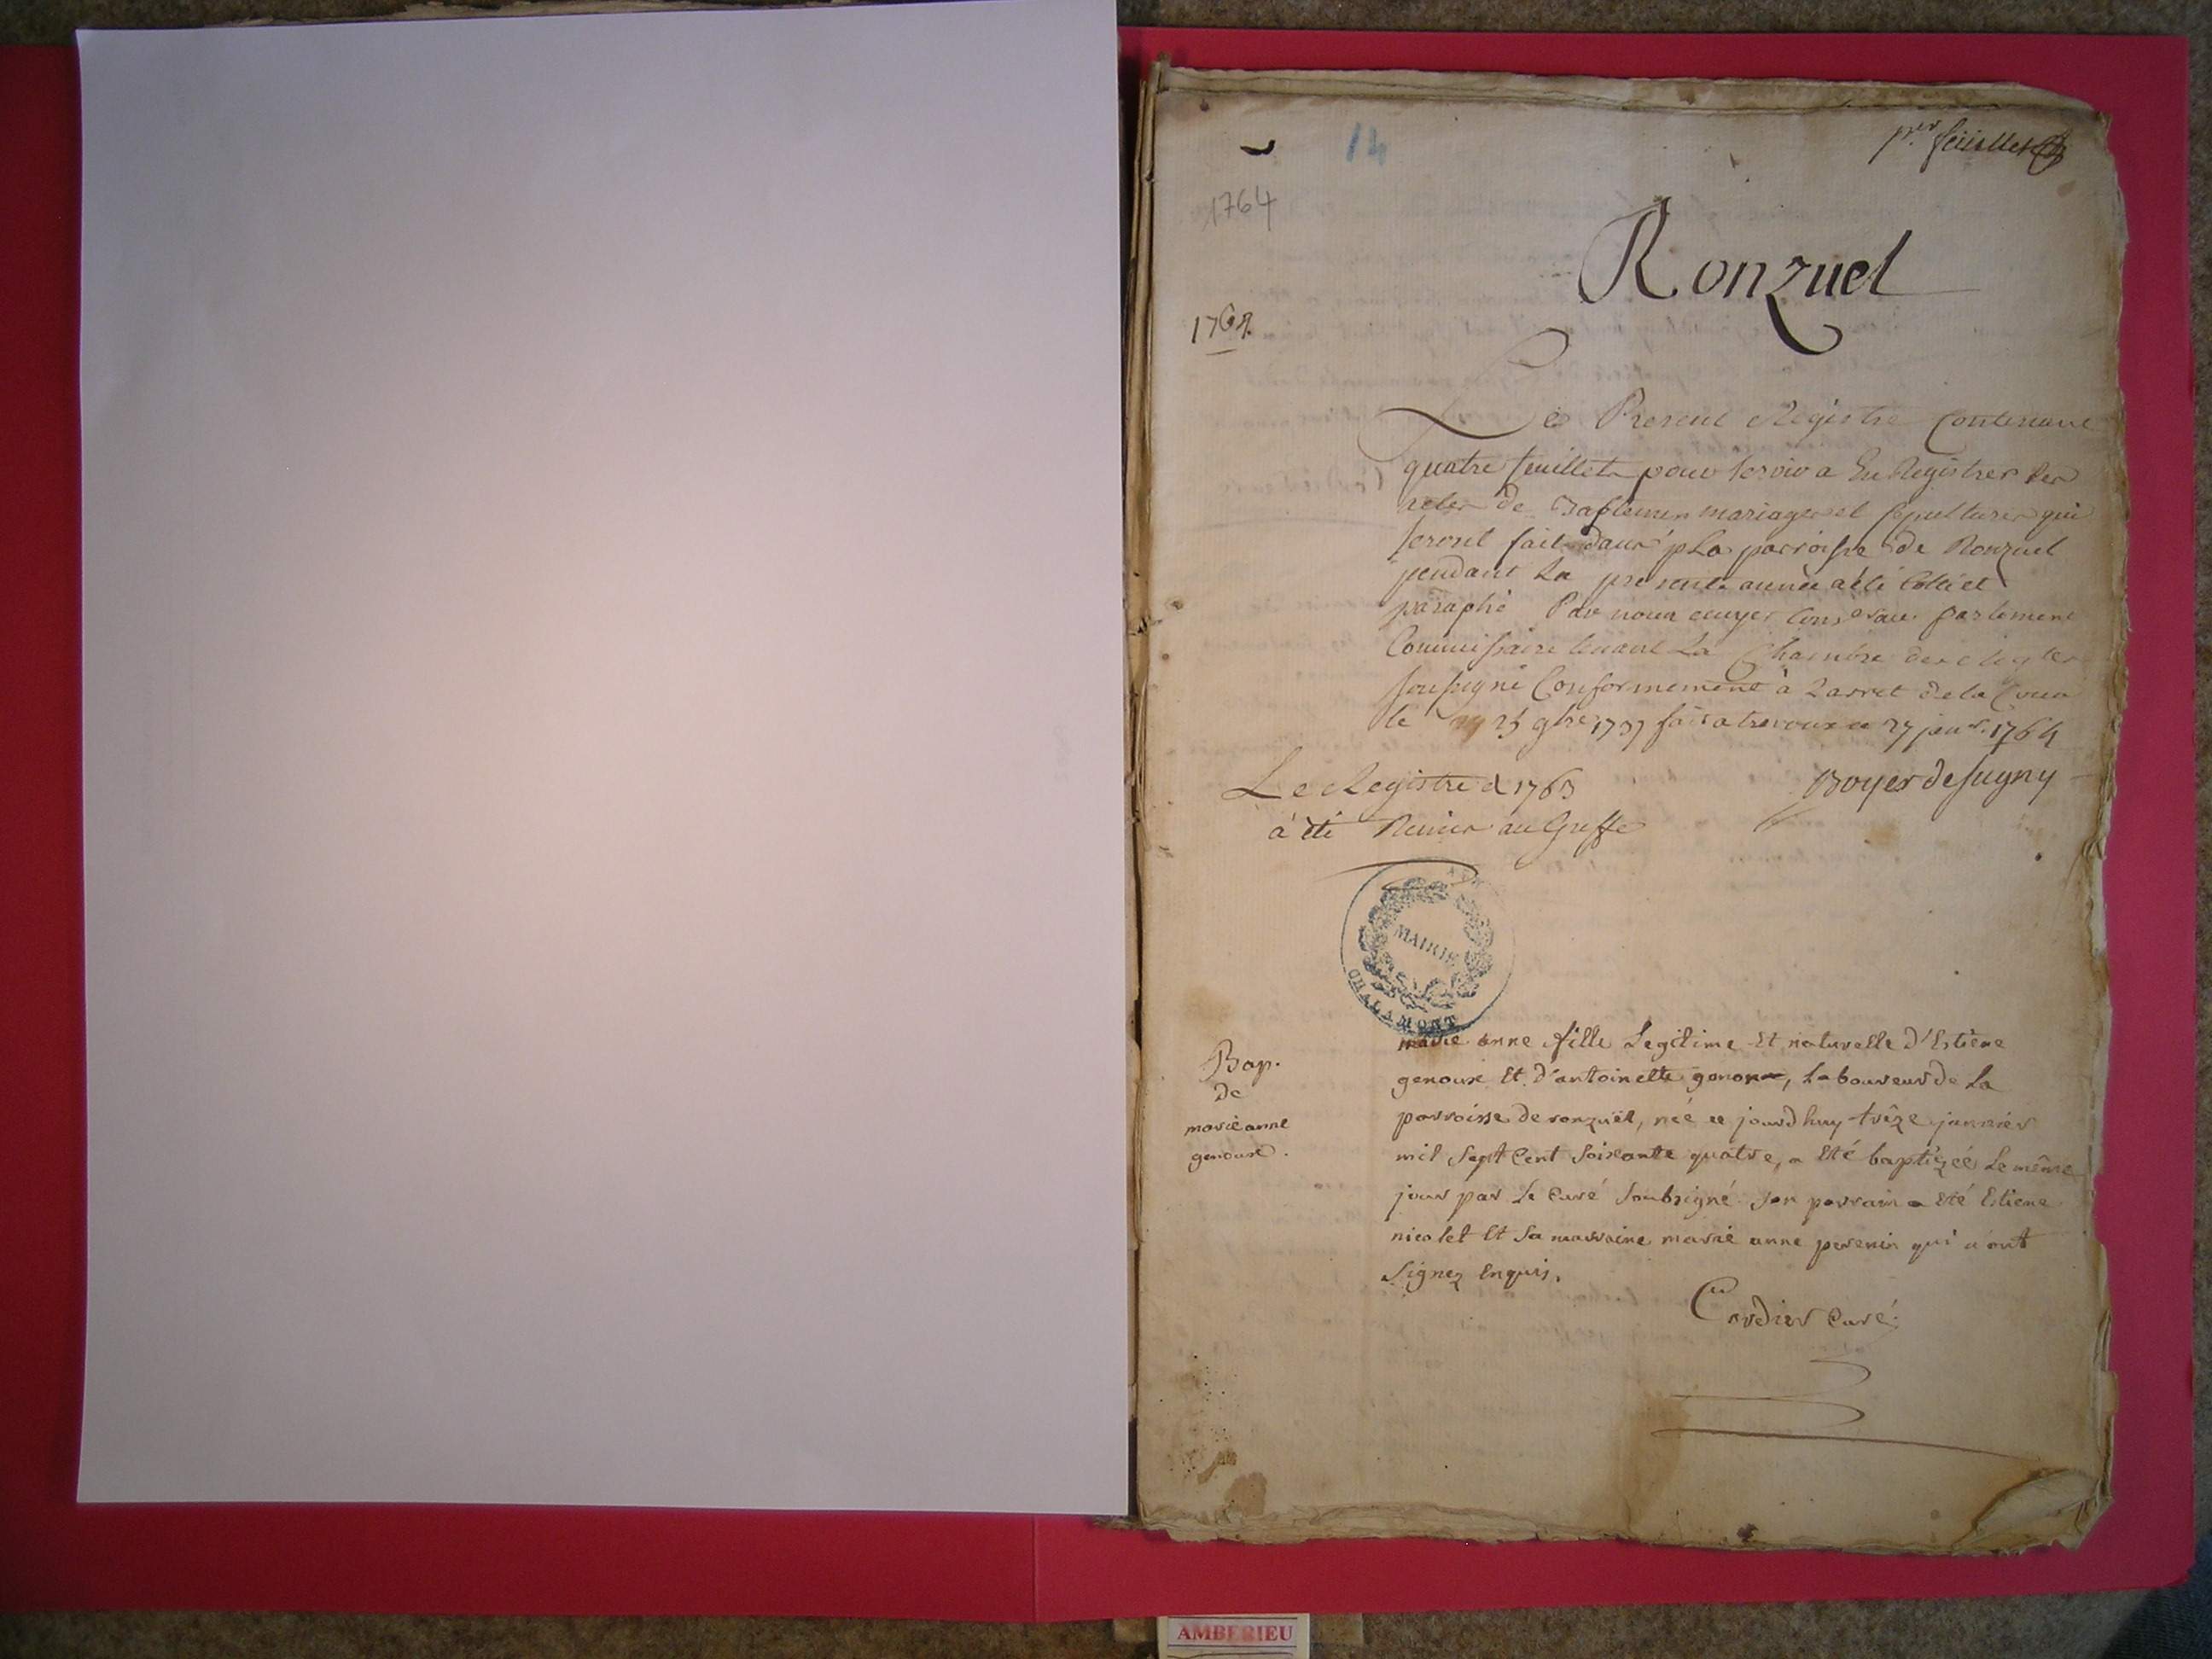 14
p.er feüillet
1764
Ronzuel
1764.
Le Present Registre Contenant
quatre feuillets pour servir a En Registrer les
actes de Baptemes mariages et sepultures qui
seront fait dans la parroisse de Ronzuel
pendant La presente année a été Cotté et
paraphé Par nous ecuyer Cons.er au parlement
Commissaire tenant La Chambre des
soussigné Conformement à Larret de la Cour
le 25 9bre 1737 fait a trevoux ce 27 janr. 1764
Le Registre d 1763
Boyer de Sugny
à été Remis au Greffe
MAIRIE
CHALAMONT
Bap.
de
marie anne
genoux.
marie anne fille Legitime Et naturelle d'Estiene
genoux Et d'antoinette gonon, Laboureur de La
parroisse de ronzuël, née ce jourd huy trêze janvier
mil sept Cent soixante quatre, a Eté baptizée Le même
jour par Le Curé soubsigné son parrain a Eté Estiene
nicolet Et sa marraine marie anne perenin qui n'ont
signez Enquis.
Cordier Curé
AMBERIEU